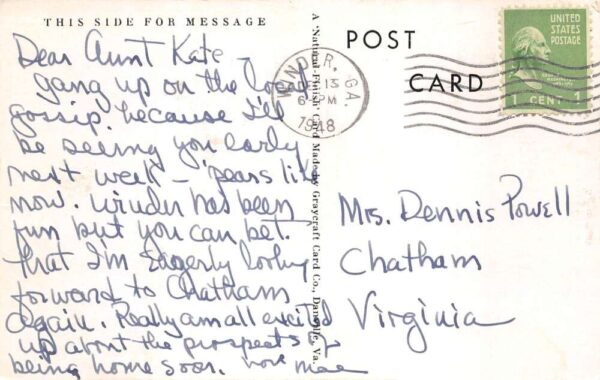 THIS SIDE FOR MESSAGE
Dear Aunt Kate -
gang up on the local
gossip because I'll
be seeing you early
next week - 'pears like
now. Winder has been
fun but you can bet
that I'm eagerly looking
forward to Chatham
again. Really am all excited
up about the prospects of
being home soon. love Mae
A "Natural-Finish" Card Made by Graycraft Card Co., Danville, Va.
POST
CARD
WINDER, GA.
13
6-PM
1948
UNITED
STATES
POSTAGE
1 CENT 1
Mrs. Dennis Powell
Chatham
Virginia